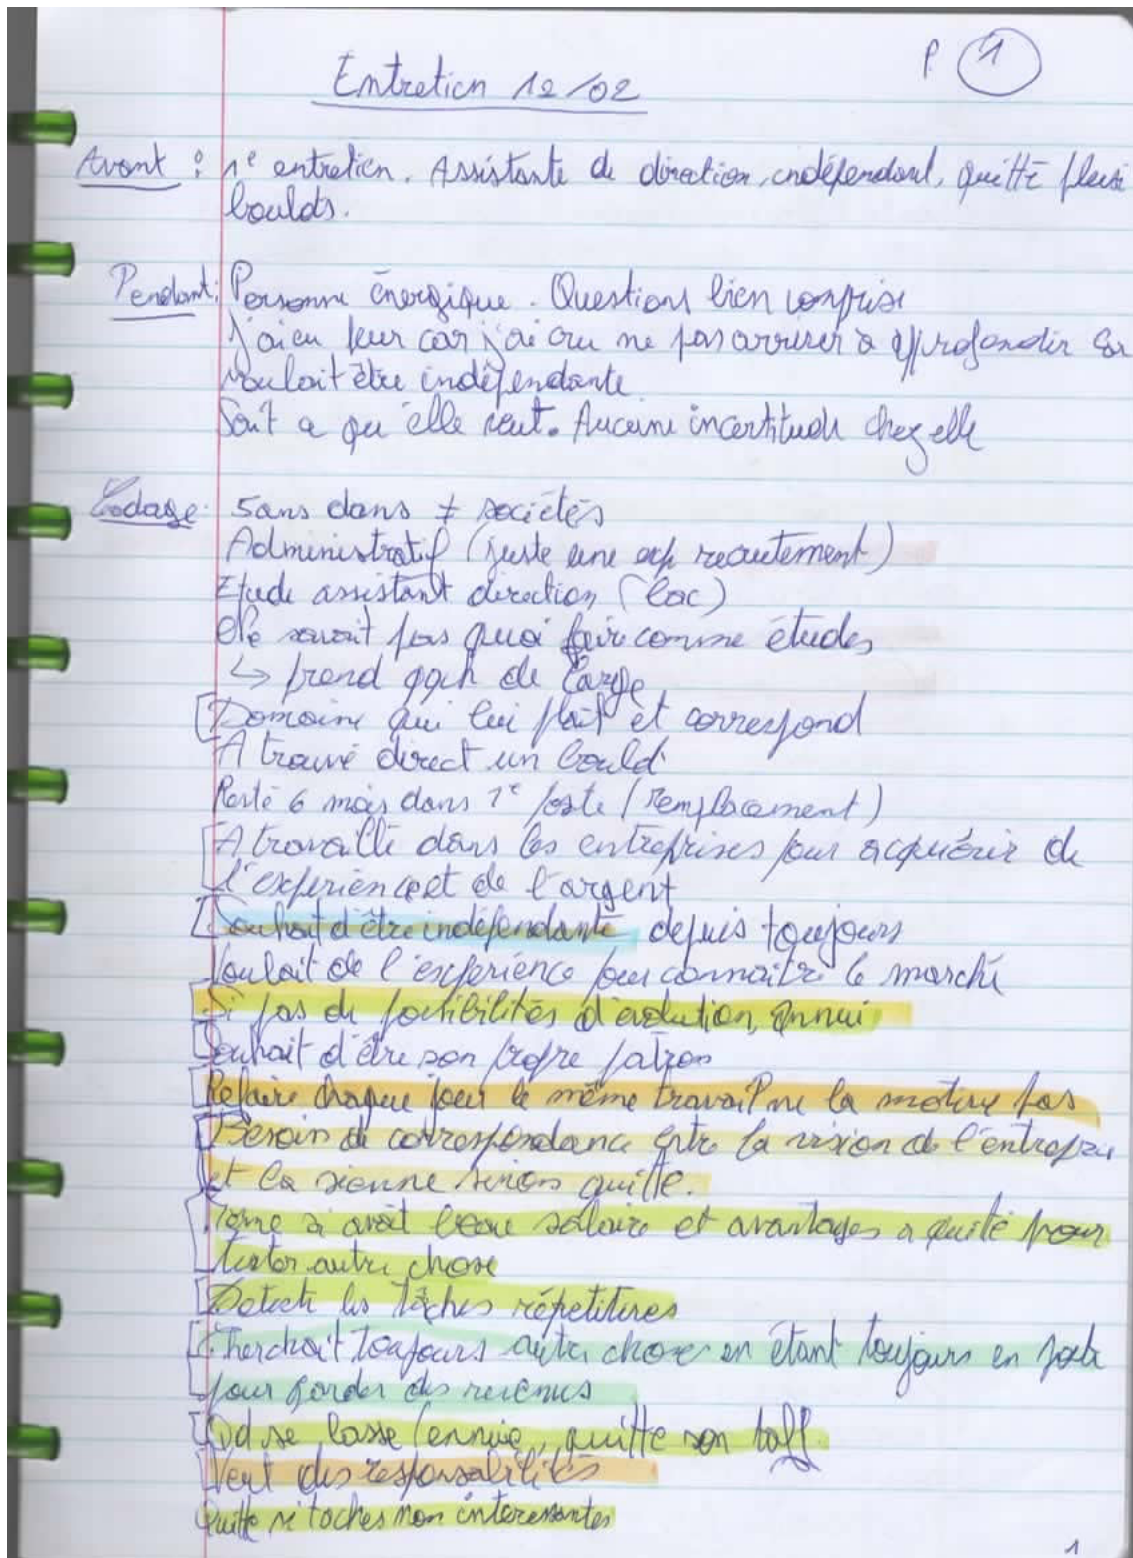 P. 1
Entretien 12/02
Avant : 1e entretien. Assistante de direction, indépendant, quitté plusi
boulots.
Pendant : Personne énergique. Questions bien comprise
J'ai eu peur car j'ai cru ne pas arriver à approfondir car
voulait être indépendante
Sait ce qu'elle veut. Aucune incertitude chez elle
Codage : 5 ans dans ≠ sociétés
Administratif (juste une exp recrutement)
Etude assistant direction (bac)
Ne savait pas quoi faire comme études
↳ prend qqch de large
Domaine qui lui plaît et correspond
A trouvé direct un boulot
Resté 6 mois dans 1e poste (remplacement)
A travaillé dans les entreprises pour acquérir de
l'expérience et de l'argent
Souhait d'être indépendante depuis toujours
Voulait de l'expérience pour connaître le marché
Si pas de possibilités d'évolution, ennui
Souhait d'être son propre patron
Refaire chaque jour le même travail ne la motive pas
Besoin de correspondance entre la vision de l'entreprise
et la sienne sinon quitte.
Même si avait beau salaire et avantages a quitté pour
tester autre chose
Déteste les tâches répétitives
Cherchait toujours autre chose en étant toujours en poste
pour garder des revenus
Qd se lasse/ennuie, quitte son taff
Veut des responsabilités
Quitte si taches non interessantes
1